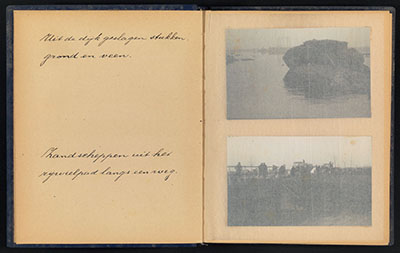 Uit de dijk geslagen stukken
grond en veen.
Zand scheppen uit het
rijwielpad langs een weg.